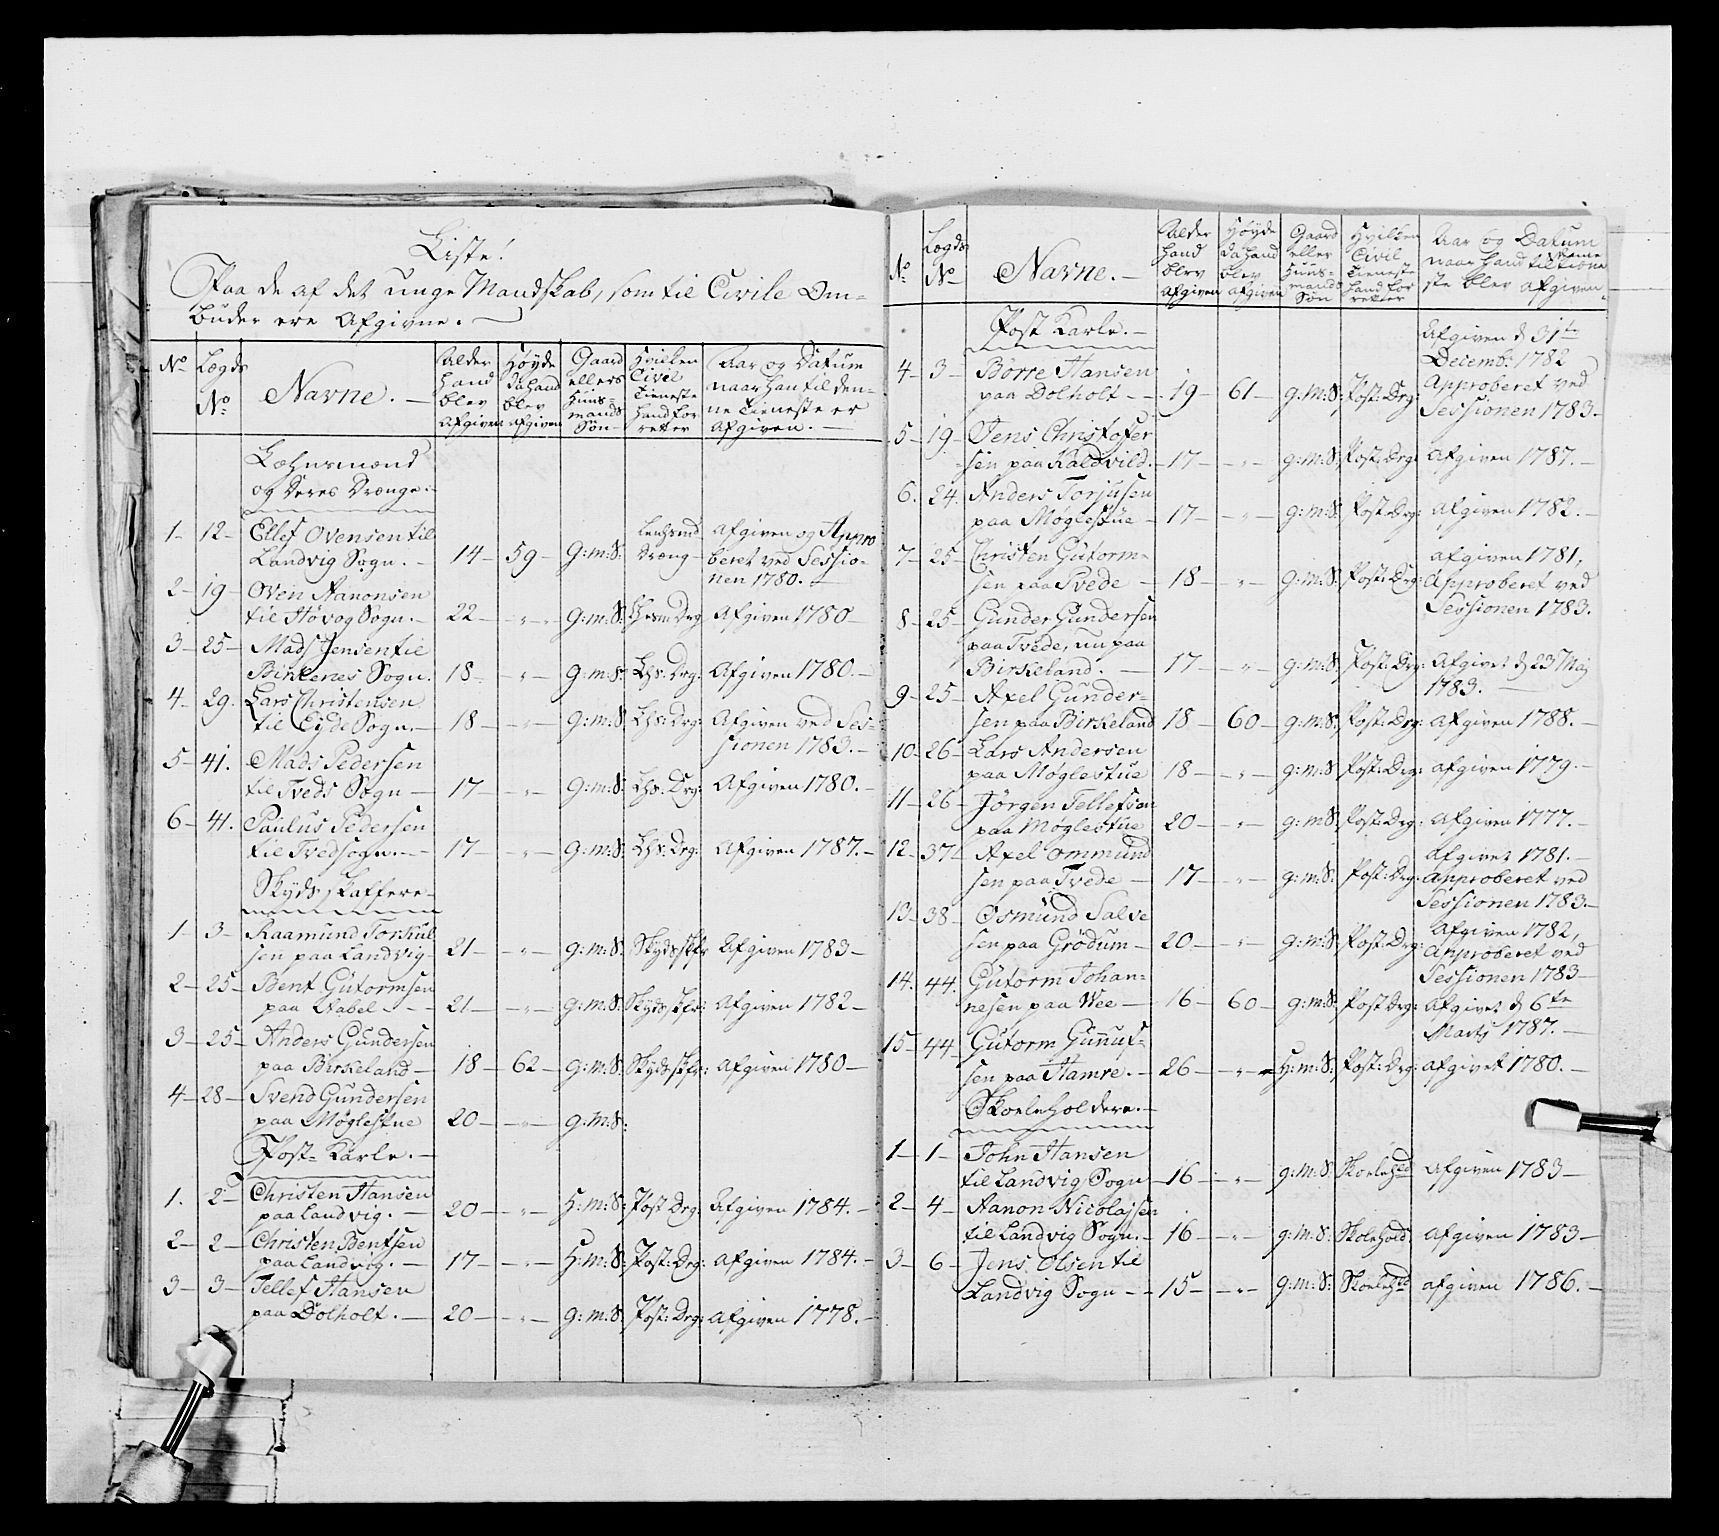 Liste!
Paa de af det unge Mandskab, som til Civile Om-
buder ere Afgivne. —
No
Lægds No
Navne. —
Alder hand blev Afgiven
Høyde da hand blev afgiven
Gaard ellers Huus- mands Søn
Hvilken Civil Tieneste hand for retter
Aar og Datum naar han til den- ne Tieneste er afgiven. —
Læhnsmænd
og deres Drænge. —
1 — 12 — Ellef Ovensen til
Landvig Sogn. — 14 — 59 — G:m:S: Lenhsmd Dræng — Afgiven og Appro
beret ved Sessio-
nen 1780. —
2 — 19 — Oven Aanonsen
til Høvog Sogn. — 22 — „ — G:m:S: Afgiven 1780 —
3 — 25 — Mads Jensen til
Birkenes Sogn. 18 — „ — g:m:S: Lhs: Drg: Afgiven 1780. —
4 — 29. Lars Christensen
til Eyde Sogn. — 18 — „ — g:m:S Lhs: Drg: Afgiven ved Ses-
sionen 1783. —
5 — 41. Mads Pedersen
til Tveds Sogn — 17 — „ — G:m:S: Lhs: Drg: Afgiven 1780. —
6 — 41. Paulus Pedersen
til Tvedsogn. — 17 — „ — G:m:S: Lhs: Drg: Afgiven 1787. —
Skydsskaffere —
1 — 3 — Raamund Torkul
sen paa Landvig — 21 — „ — g:m:S. Skydsskfr Afgiven 1783 —
2 — 25 — Bent Gutormsen
paa Nabel — — — 21 — „ — g:m:S: Skydsskfr: Afgiven 1782 —
3 — 25 — Anders Gundersen
paa Birkeland — 18 — 62 — g:m:S: Skydsskfr: Afgiven 1780 —
4 — 28 — Svend Gundersen
paa Møglestue 20 — „ — g:m:S:
Post- Karle. —
1. 2 — Christen Hansen
paa Landvig. — 20 — „ — H:m:S: Post Drg: Afgiven 1784. —
2 — 2 — Christen Bentsen
paa Landvig. — 17 — „ — H:m:S: Post: Drg: Afgiven 1784. —
3 — 3 — Tellef Hansen
paa Dolholt. — 20 — „ — g:m:S. Post: Drg: afgiven 1778. —
No
Lægds No
Navne. —
Alder hand blev Afgiven
Høyde da hand blev afgiven
Gaard eller Huus- mands Søn
Hvilken Civil Tieneste hand for retter
Aar og Datum
naar hand til
ste blev afgiven
Post Karle. —
4 — 3 — Börre Hansen
paa Dolholt — — 19 — 61 — g:m:S: Post: Drg: Afgiven d 31te
Decemb: 1782
Approberet ved
Sessionen 1783 —
5 — 19 — Jens Christofer
sen paa Kaldvild. — 17 — „ — g:m:S: Post: Drg: Afgiven 1787. —
6. 24. Anders Torjusen
paa Møglestue — 17 — „ — g:m:S: Post: Drg: Afgiven 1782. —
7 — 25 — Christen Gutorm-
sen paa Tvede — 18 — „ — g:m:S: Post: Drg: afgiven 1781,
Approberet ved
Sessionen 1783.
8 — 25 — Gunder Gundersen
paa Tvede, nu paa
Birkeland. — 17 — „ — g:m:S: Post: Drg: Afgivet d 23 Maj
1783. —
9 — 25 — Axel Gunder-
sen paa Birkeland 18 — 60 — g:m:S: Post: Drg: Afgiven 1788. —
10 — 26 — Lars Andersen
paa Møglestue 18 — „ — g:m:S Post: Drg: afgiven 1779. —
11 — 26 — Jörgen Tellefsen
paa Møglestue 20 — „ — g:mS. Post: Drg: Afgiven 1777. —
12 — 37 — Axel Ommund
sen paa Tvede — 17 — „ — g:m:S. Post: Drg: Afgivet 1781. —
Approberet ved
Sessionen 1783 —
13 — 38 — Osmund Salve
sen paa Grödum — 20 — „ — g:m:S. Post: Drg: Afgiven 1782,
Approberet ved
Sessionen 1783 —
14. 44. Gutorm Johan-
nesen paa Wee — 16 — 60 — g:m:S: Post Drg: Afgivet d 6te
Marts 1787. —
15 — 44 — Gutorm Gunuf-
sen paa Hamre. — 26 — „ — H:m:S: Post: Drg: afgivet 1780. —
Skoeleholdere. —
1 — 1 — John Hansen
til Landvig Sogn — 16 — „ — g:m:S. Afgiven 1783 —
2 — 4 — Aanon Nicolajsen
til Landvig Sogn. — 16 — „ — g:m:S: Skolehold: afgiven 1783 —
3 — 6 — Jens Olsen til
Landvig Sogn — — 15 — „ — g:m:S: afgiven 1786. —